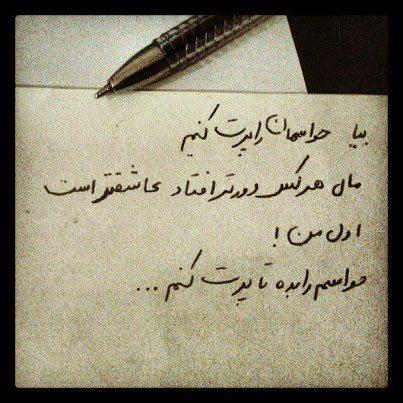 بیا حواسمان را پرت کنیم
مال هرکس دورتر افتاد عاشقتر است
اول من !
حواسم را بده تا پرت کنم ...